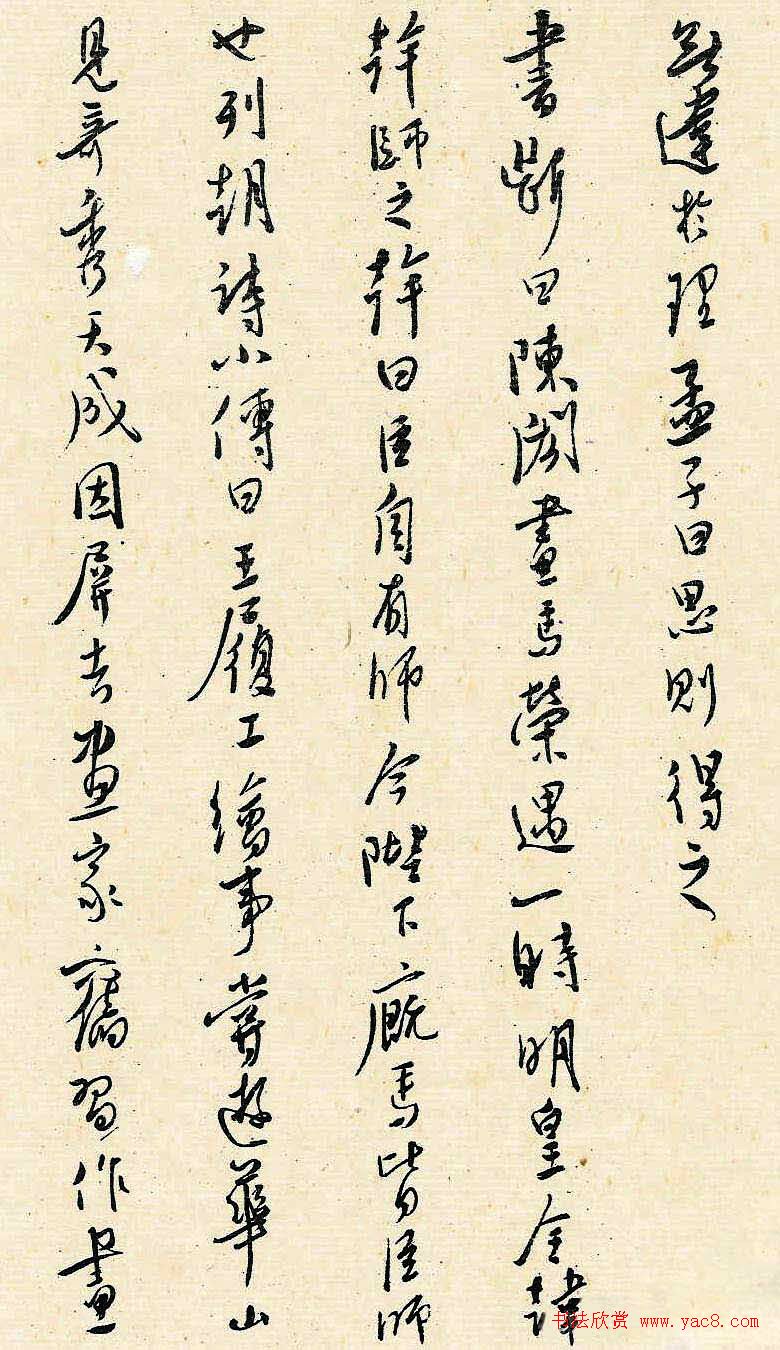 無違於理孟子曰思則得之
書斷曰陳閎畫馬榮遇一時明皇令韓
幹師之幹曰臣自有師今陛下廐馬皆臣師
也列朝詩小傳曰王履工繪事嘗遊華山
見奇秀天成因屏去畫家舊習作畫
书法欣赏 www.yac8.com